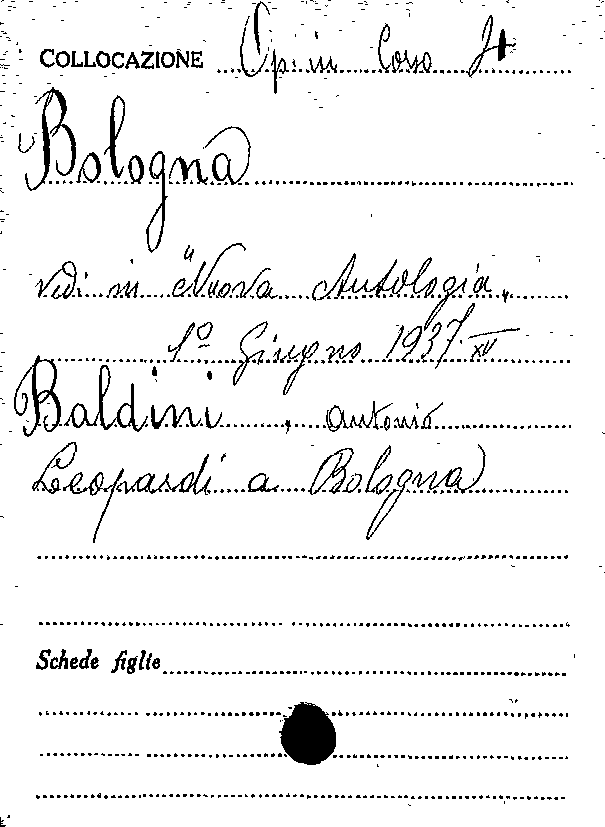 COLLOCAZIONE Op. in Corso
Bologna
vedi in "Nuova Antologia„
1º Giugno 1937. XV
Baldini, Antonio
Leopardi a Bologna
Schede figlie